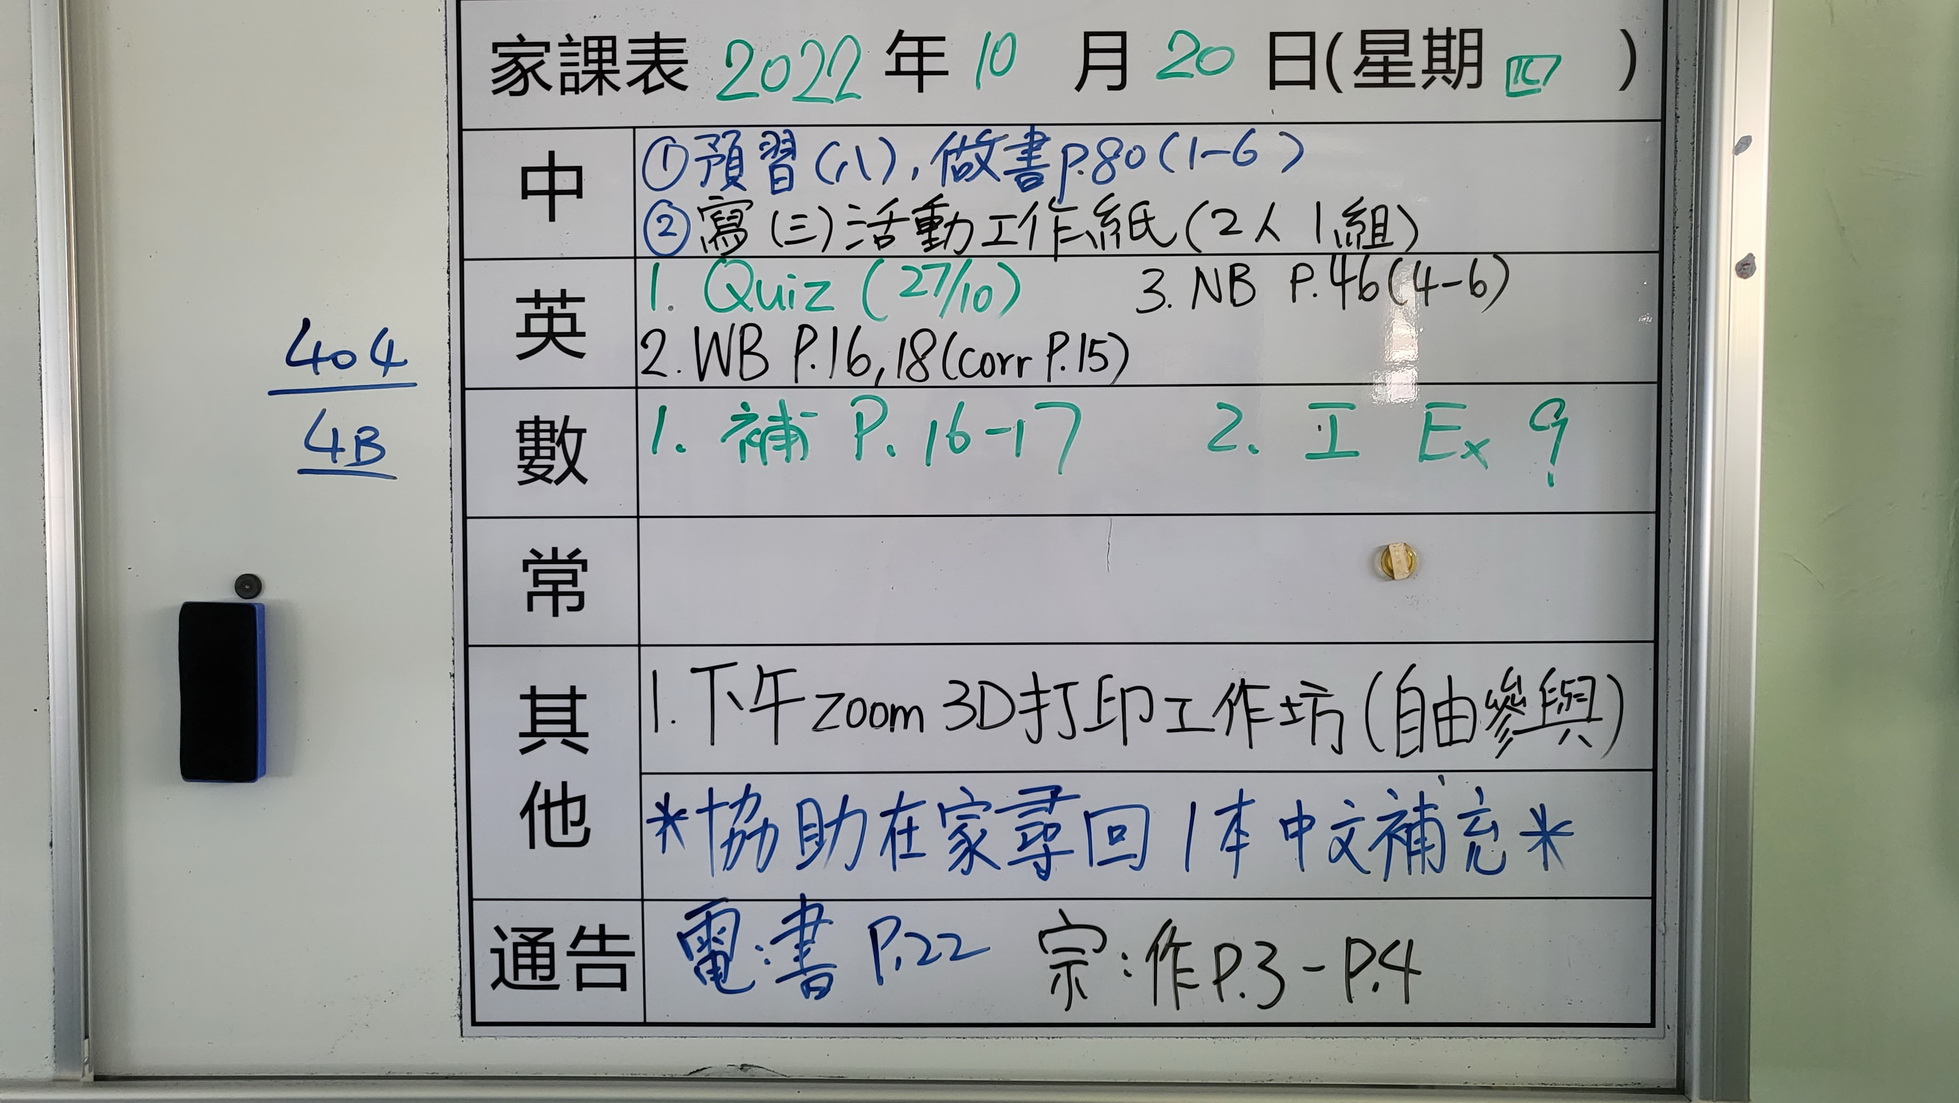 家課表 2022 年 10 月 20 日(星期 四 )
中
①預習(八), 做書p.80(1-6)
②寫(三)活動工作紙(2人1組)
404
4B
英
1. Quiz (27/10) 3. NB P.46(4-6)
2. WB P.16,18(corr P.15)
數
1. 補 P. 16-17 2. 工 Ex 9
常
其他
1. 下午zoom 3D打印工作坊(自由參與)
*協助在家尋回1本中文補充*
通告
電:書 P.22 宗:作P.3-P.4